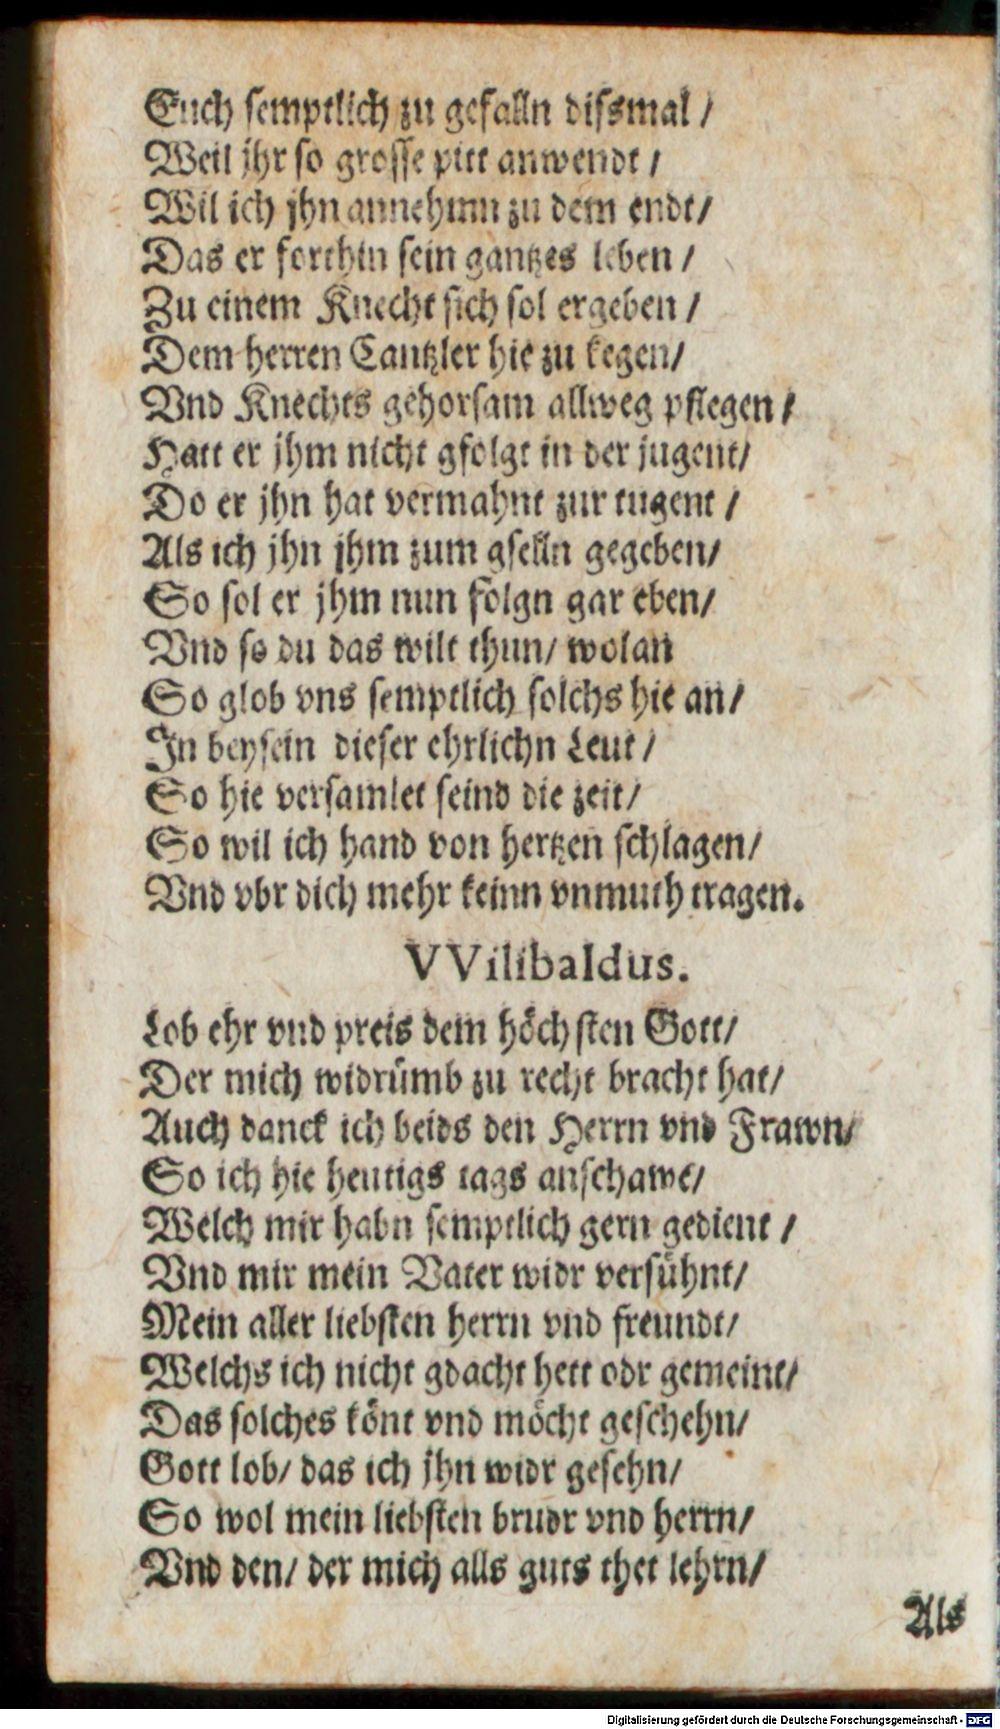 Euch semptlich zu gefalln dissmal /
Weil jhr so grosse pitt anwendt /
Wil ich jhn annehmn zu dem endt/
Das er forthin sein gantzes leben /
Zu einem Knecht sich sol ergeben /
Dem herren Cantzler hie zu kegen/
Vnd Knechts gehorsam allweg pflegen /
Hatt er jhm nicht gfolgt in der jugent/
Do er jhn hat vermahnt zur tugent /
Als ich jhn jhm zum gselln gegeben/
So sol er jhm nun folgn gar eben/
Vnd so du das wilt thun/ wolan
So glob vns semptlich solchs hie an/
In beysein dieser ehrlichn Leut /
So hie versamlet seind die zeit/
So wil ich hand von hertzen schlagen/
Vnd vbr dich mehr keinn vnmuth tragen.
VVilibaldus.
Lob ehr vnd preis dem höchsten Gott/
Der mich widrümb zu recht bracht hat/
Auch danck ich beids den Herrn vnd Frawn/
So ich hie heutigs tags anschawe/
Welch mir habn semptlich gern gedient /
Vnd mir mein Vater widr versühnt/
Mein aller liebsten herrn vnd freundt/
Welchs ich nicht gdacht hett odr gemeint/
Das solches könt vnd möcht geschehn/
Gott lob/ das ich jhn widr gesehn/
So wol mein liebsten brudr vnd herrn/
Vnd den/ der mich alls guts thet lehrn/
Als
Digitalisierung gefördert durch die Deutsche Forschungsgemeinschaft - DFG